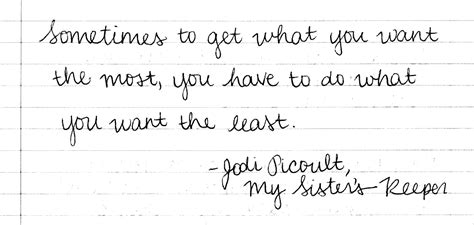 Sometimes to get what you want
the most, you have to do what
you want the least.
-Jodi Picoult,
My Sister's Keeper